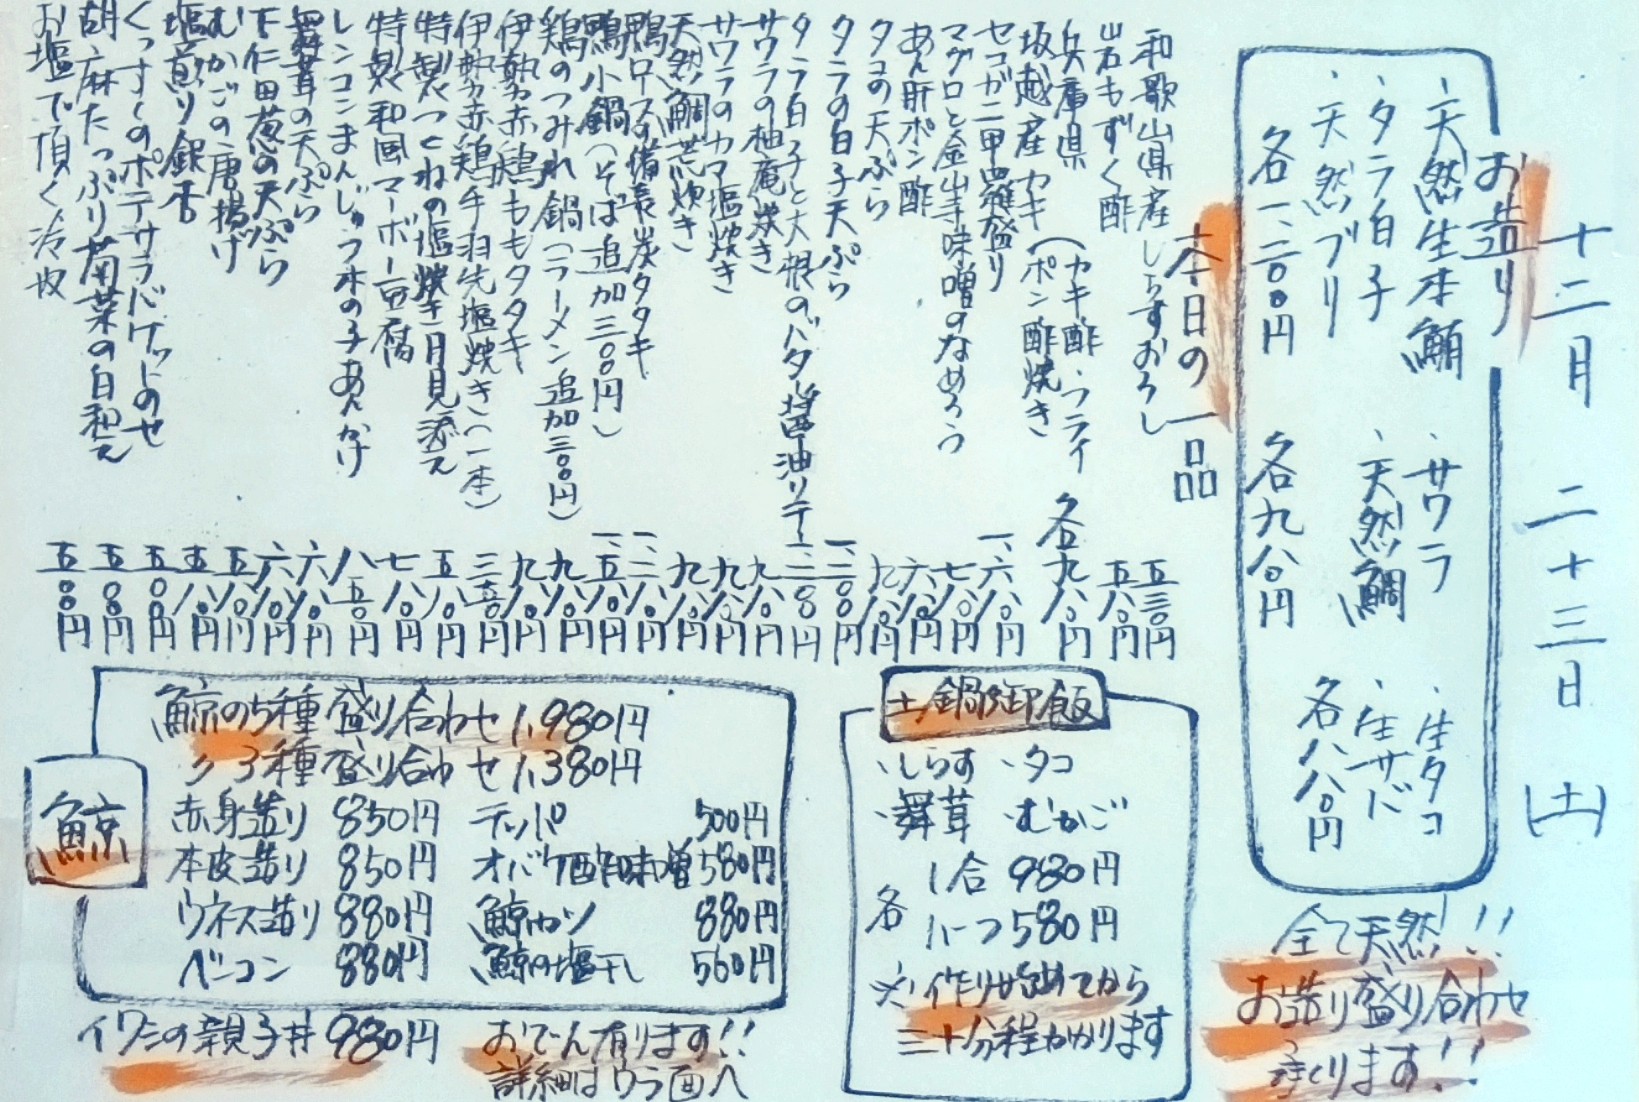 十二月 二十三日 (土)
お造り
・天然生本鮪 ・サワラ ・生タコ
・タラ白子 ・天然鯛 ・生サバ
・天然ブリ
各一、二〇〇円 各九八〇円 各八八〇円
全て天然!!
お造り盛り合わせ
承ります!!
本日の一品
和歌山県産しらすおろし 五三〇円
岩もずく酢 五八〇円
兵庫県 (カキ酢・フライ
坂越産カキ (ポン酢焼き 各九八〇円
セコガニ甲羅盛り 一、六八〇円
マグロと金山寺味噌のなめろう 七八〇円
あん肝ポン酢 六八〇円
タコの天ぷら 九八〇円
タラの白子天ぷら 一、二〇〇円
タラ白子と大根のバター醤油ソテー 一、二〇〇円
サワラの柚庵焼き 九八〇円
サワラのカマ塩焼き 九八〇円
天然鯛荒炊き 九八〇円
鴨ロースの備長炭タタキ 一、二八〇円
鴨小鍋(そば追加三〇〇円) 一、五八〇円
鶏のつみれ鍋(ラーメン追加三〇〇円) 九八〇円
伊勢赤鶏ももタタキ 九八〇円
伊勢赤鶏手羽先塩焼き(一本) 三五〇円
特製つくねの塩焼き月見添え 五八〇円
特製和風マーボー豆腐 七八〇円
レンコンまんじゅう木の子あんかけ 八五〇円
舞茸の天ぷら 六八〇円
下仁田葱の天ぷら 六八〇円
むかごの唐揚げ 五八〇円
塩煎り銀杏 五八〇円
くっすくのポテサラバゲットのせ 五〇〇円
胡麻たっぷり菊菜の白和え 五八〇円
お塩で頂く冷奴 五〇〇円
土鍋御飯
・しらす ・タコ
・舞茸 ・むかご
各
1合 980円
ハーフ580円
※作り始めてから
三十分程かかります
鯨
鯨の5種盛り合わせ 1,980円
〃 3種盛り合わせ 1,380円
赤身造り 850円 テッパ 500円
本皮造り 850円 オバケ酢味噌 580円
ウネス造り 880円 鯨カツ 880円
ベーコン 880円 鯨の塩干し 560円
イワシの親子丼 980円
おでん有ります!!
詳細はウラ面へ